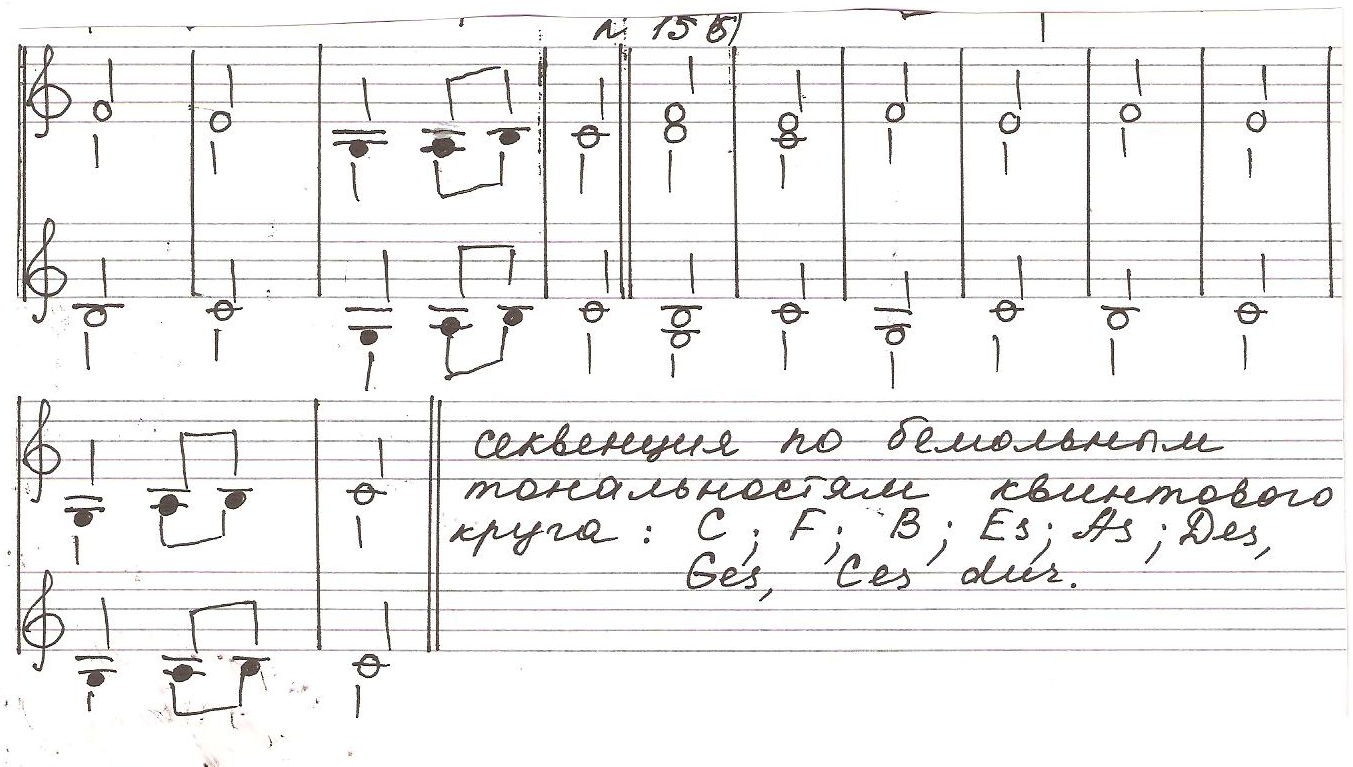 n 15 б)
секвенция по бемольным
тональностям квинтового
круга : C ; F ; B ; Es ; As ; Des,
Ges, Ces dur.